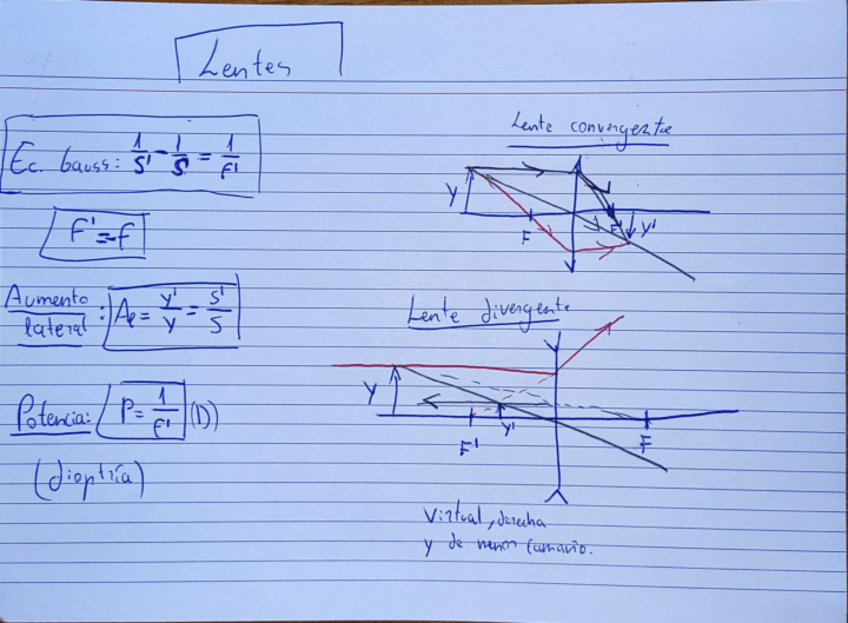 Lentes
Ec. Gauss: 1/S' - 1/S = 1/F'
F' = -F
Aumento lateral: Aℓ = y'/y = S'/S
Potencia: P = 1/F' (D)
(dioptría)
Lente convergente
y
F
F'
y'
Lente divergente
y
F'
y'
F
Virtual, derecha
y de menor tamaño.